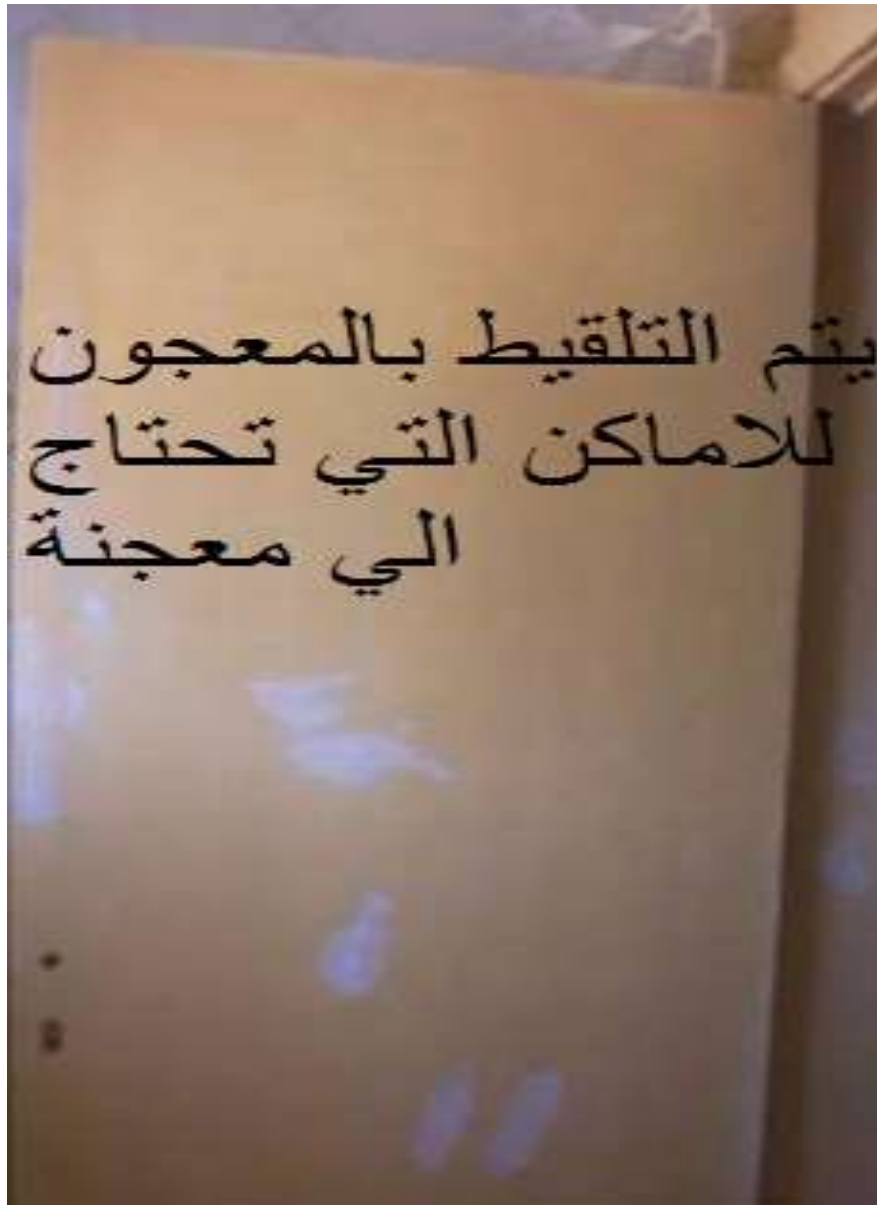 يتم التلقيط بالمعجون
للاماكن التي تحتاج
الي معجنة